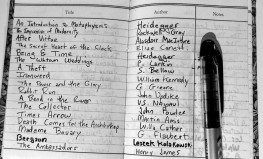 Title Author
An Introduction to Metaphysics Heidegger
The Imperative of Modernity Rockwell Gray
After Virtue Alasdair MacIntyre
The Secret Heart of the Clock Elias Canetti
Being & Time Heidegger
The Whitsun Weddings P. Larkin
A Theft S. Bellow
Ironweed William Kennedy
The Power and the Glory G. Greene
Rabbit Run John Updike
A Bend in the River V.S. Naipaul
The Collector John Fowles
Times Arrow Martin Amis
Death Comes for the Archbishop Willa Cather
Madame Bovary G. Flaubert
Bergson Leszek Kolakowski
The Ambassadors Henry James